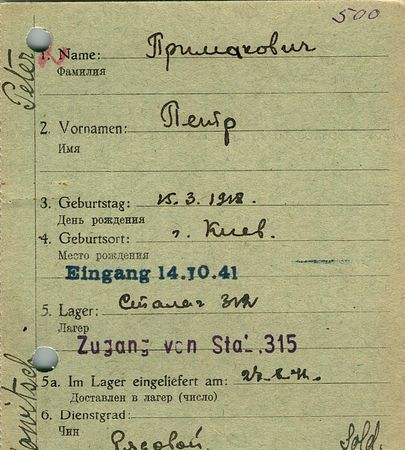 500
Peter
1. Name: Примакович
Фамилия
2. Vornamen: Петр
Имя
3. Geburtstag: 15. 3. 1918.
День рождения
4. Geburtsort: г. Киев.
Место рождения
Eingang 14.10.41
5. Lager: Сталаг
Лагер
Zugang von Stal. 315
5a. Im Lager eingeliefert am:
Доставлен в лагер (число)
6. Dienstgrad:
Чин
Рядовой. Sold.